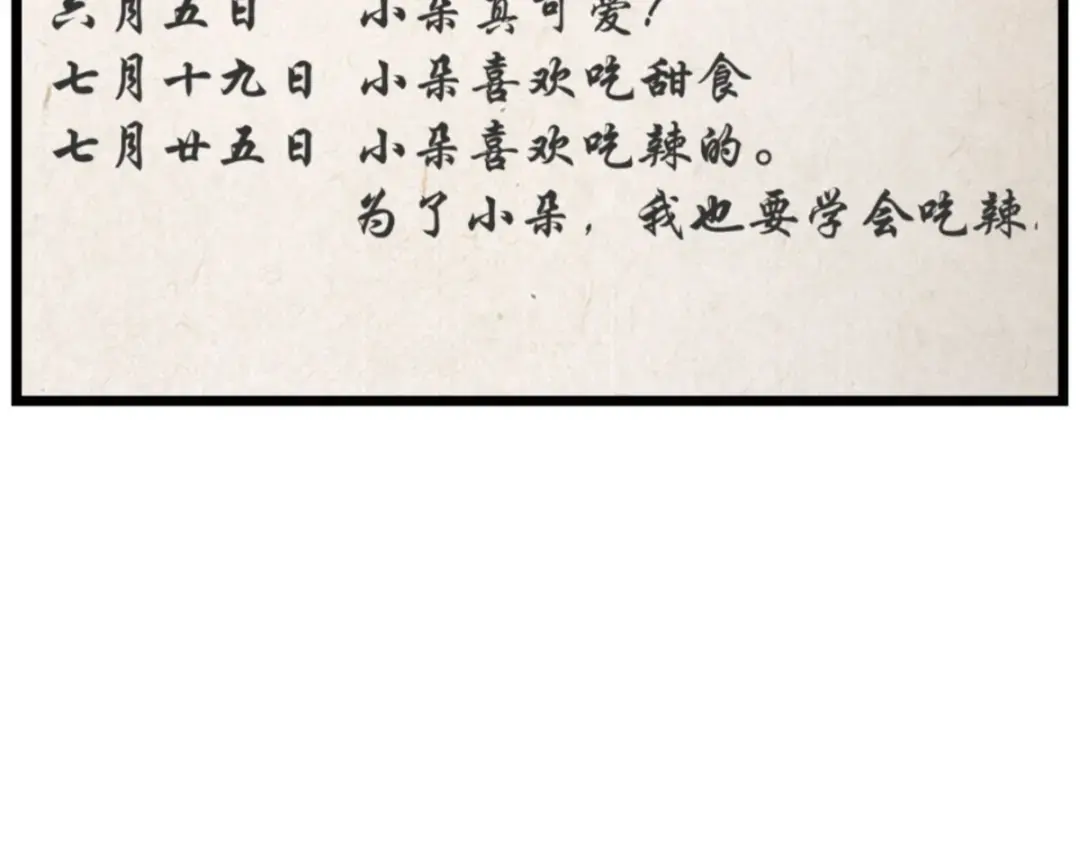 六月五日 小朵真可爱！
七月十九日 小朵喜欢吃甜食
七月廿五日 小朵喜欢吃辣的。
为了小朵，我也要学会吃辣